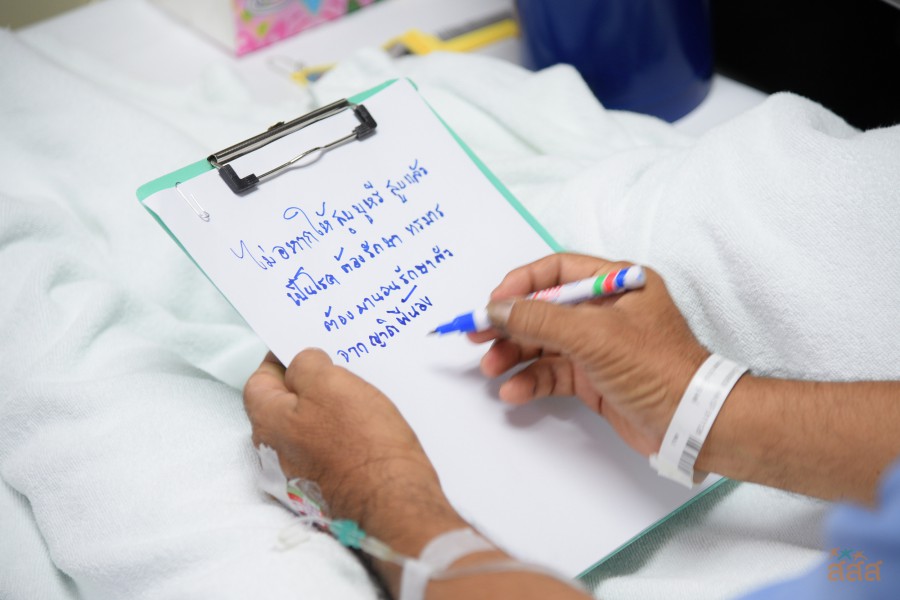 ไม่อยากให้ สูบบุหรี่ สูบแล้ว
เป็นโรค ต้องรักษา ทรมาร
ต้อง มานอนรักษาตัว
จาก ญาติพี่น้อง
สสส